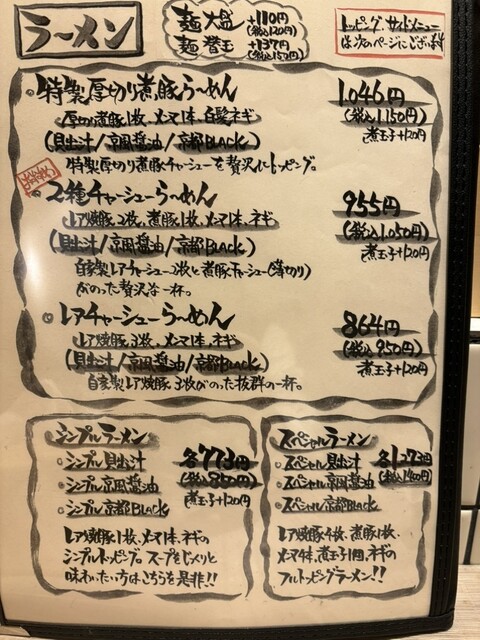 ラーメン
麺大盛 +110円
(税込120円)
麺替玉 +137円
(税込150円)
トッピング、サイドメニュー
は次のページにございます
特製厚切り煮豚らーめん 1.046円
厚切り煮豚1枚、メンマ1本、白髪ネギ (税込1.150円)
(貝出汁/京風醤油/京都BLACK) 煮玉子+120円
特製厚切り煮豚チャーシューを贅沢にトッピング。
2種チャーシューらーめん 955円
レア焼豚2枚、煮豚1枚、メンマ1本、ネギ (税込1.050円)
(貝出汁/京風醤油/京都BLACK) 煮玉子+120円
自家製レアチャーシュー2枚と煮豚チャーシュー(薄切り)
がのった贅沢な一杯。
レアチャーシューらーめん 864円
レア焼豚3枚、メンマ1本、ネギ (税込950円)
(貝出汁/京風醤油/京都BLACK) 煮玉子+120円
自家製レア焼豚3枚がのった抜群の一杯。
シンプルラーメン
シンプル貝出汁 各773円
シンプル京風醤油 (税込850円)
シンプル京都BLACK 煮玉子+120円
レア焼豚1枚、メンマ1本、ネギの
シンプルトッピング。スープをじっくりと
味わいたい方はこちらを是非!!
スペシャルラーメン
スペシャル貝出汁 各1.273円
スペシャル京風醤油 (税込1400円)
スペシャル京都BLACK
レア焼豚4枚、煮豚1枚、
メンマ4本、煮玉子1個、ネギの
フルトッピングラーメン!!